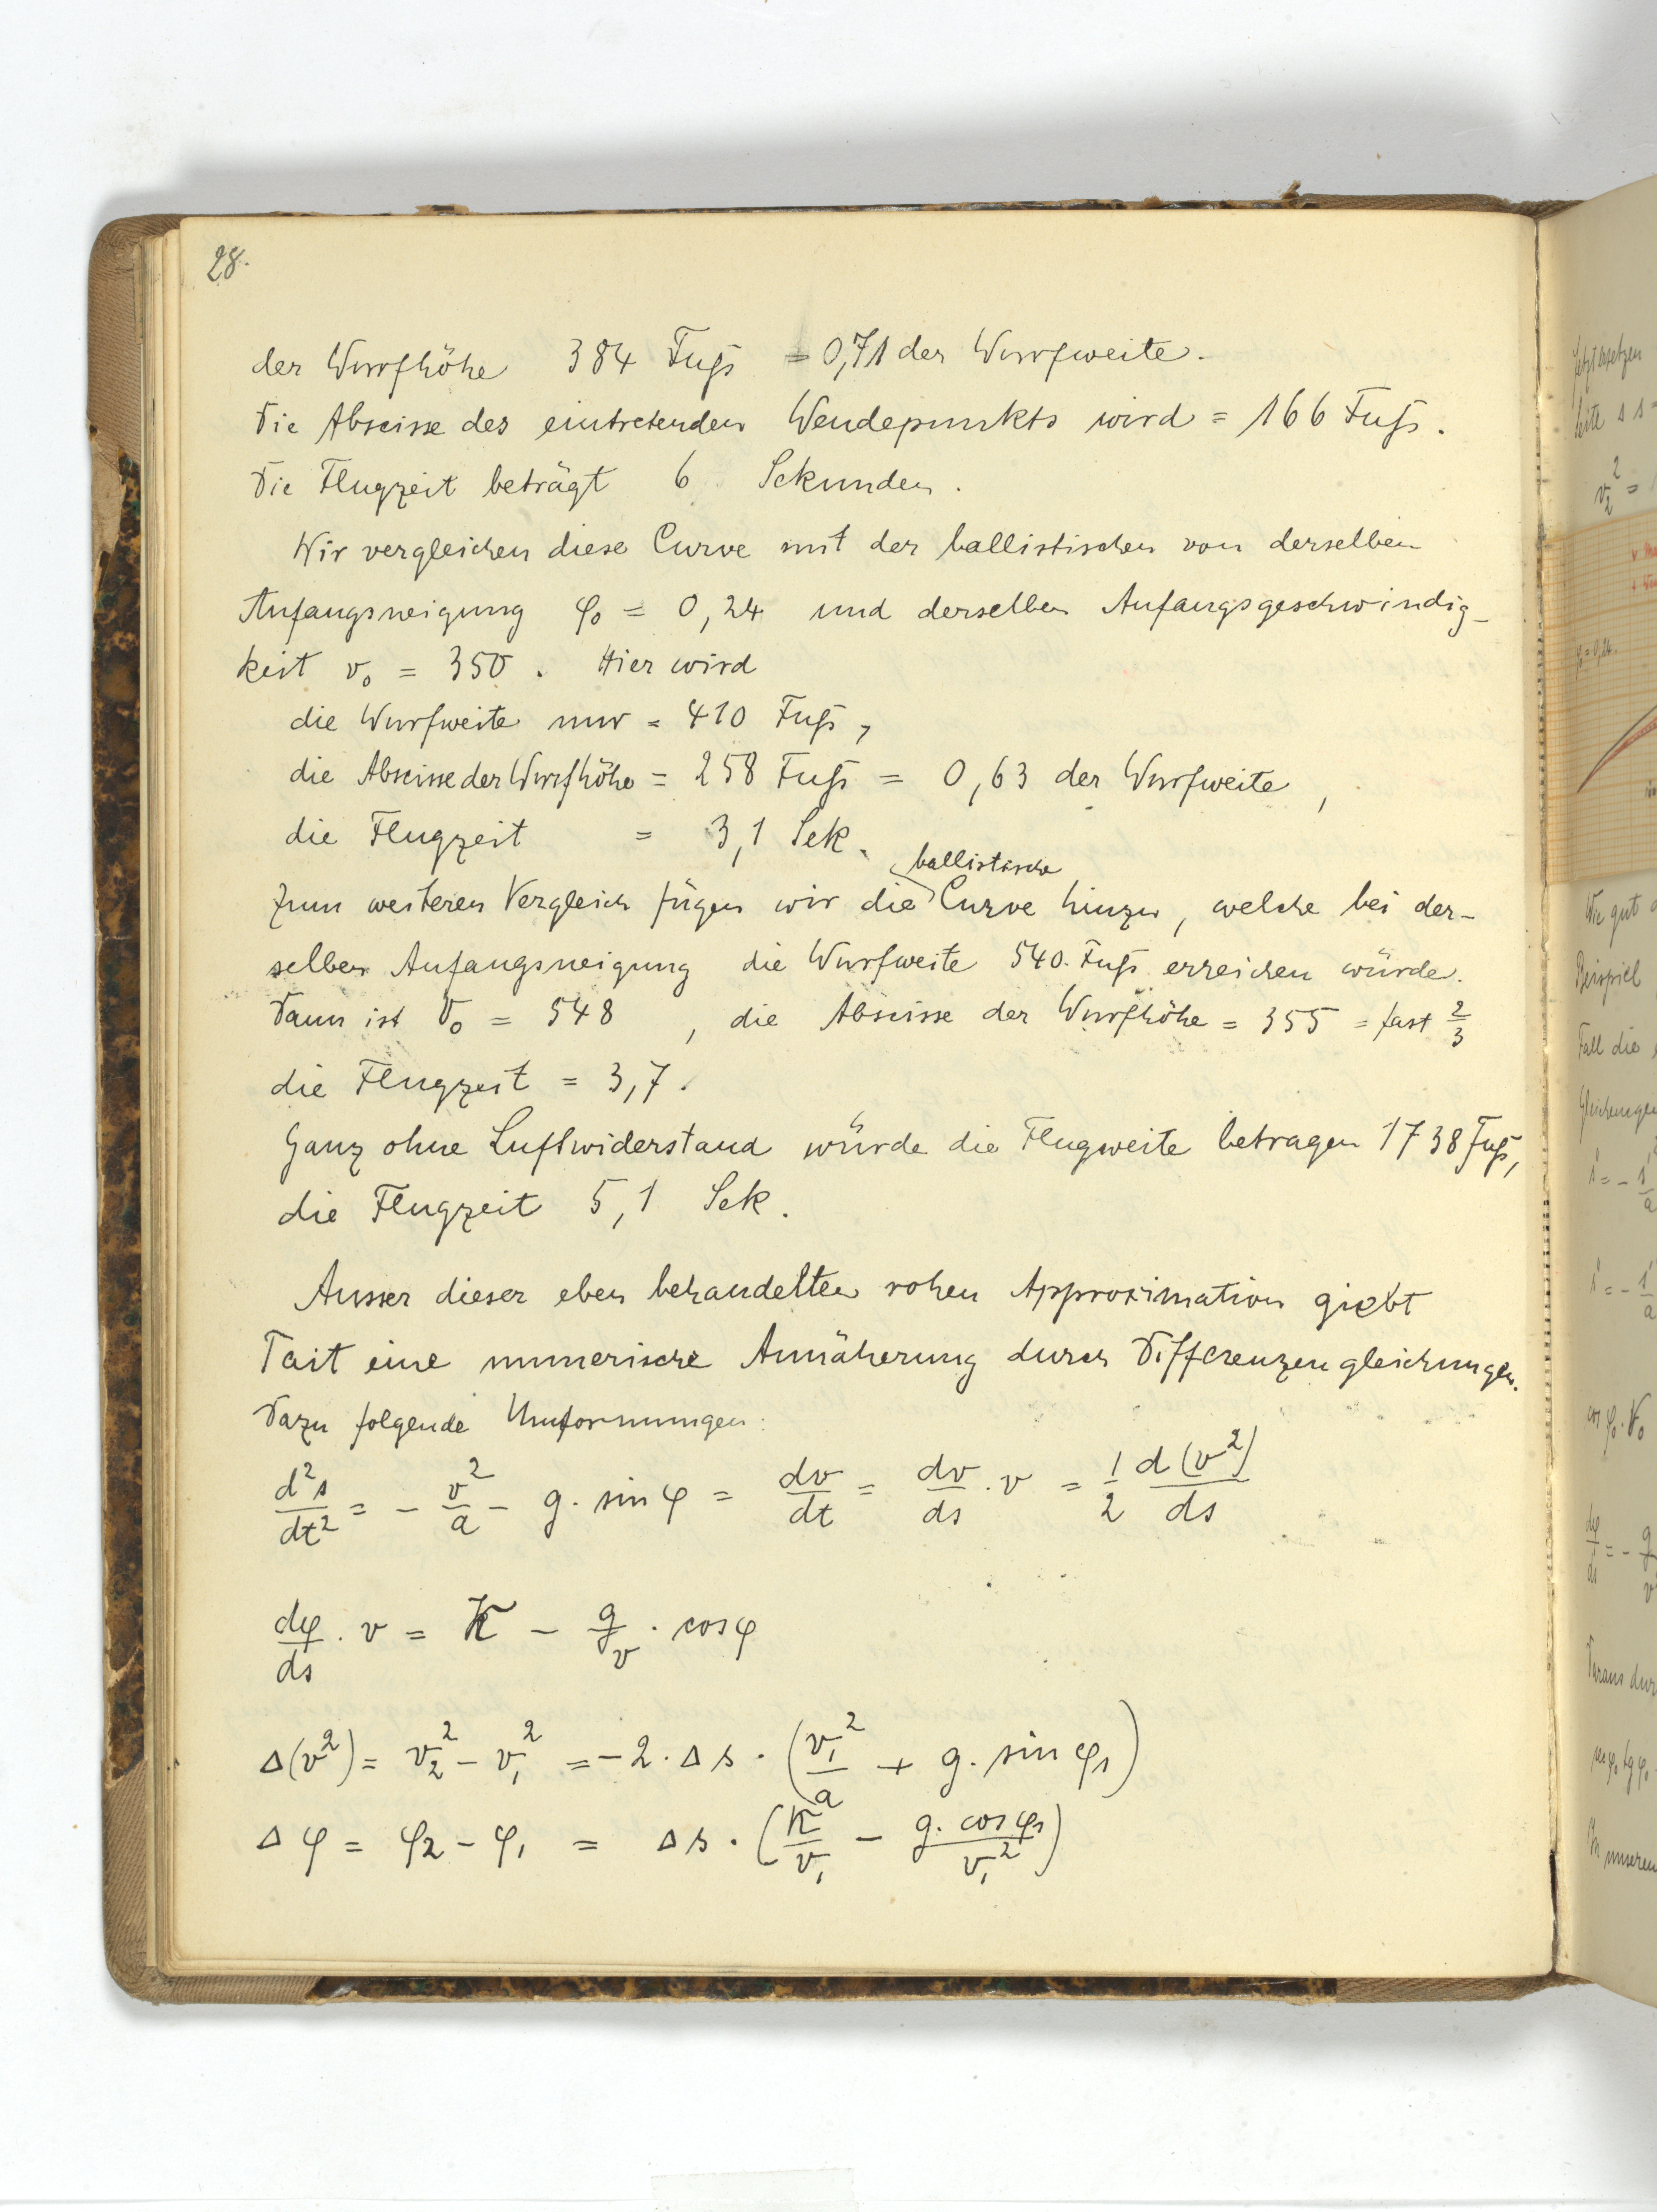 28.
der Wurfhöhe 384 Fuß = 0,71 der Wurfweite.
Die Abscisse des eintretenden Wendepunkts wird = 166 Fuß.
Die Flugzeit beträgt 6 Sekunden.
Wir vergleichen diese Curve mit der ballistischen von derselben
Anfangsneigung φ₀ = 0,24 und derselben Anfangsgeschwindig-
keit v₀ = 350. Hier wird
die Wurfweite nur = 410 Fuß,
die Abscisse der Wurfhöhe = 258 Fuß = 0,63 der Wurfweite,
die Flugzeit = 3,1 Sek.
ballistische
Zum weiteren Vergleich fügen wir die Curve hinzu, welche bei der-
selben Anfangsneigung die Wurfweite 540 Fuß erreichen würde.
Dann ist V₀ = 548, die Abscisse der Wurfhöhe = 355 = fast 2/3
die Flugzeit = 3,7.
Ganz ohne Luftwiderstand würde die Flugweite betragen 1738 Fuß,
die Flugzeit 5,1 Sek.
Ausser dieser eben behandelten rohen Approximation giebt
Tait eine numerische Annäherung durch Differenzengleichungen.
Dazu folgende Umformungen:
d²s/dt² = - v²/a - g. sin φ = dv/dt = dv/ds . v = 1/2 d(v²)/ds
dφ/ds . v = K - g/v . cos φ
Δ(v²) = v₂² - v₁² = -2 . Δs . (v₁²/a + g. sin φ₁)
Δφ = φ₂ - φ₁ = Δs . (K/v₁ - g. cos φ₁/v₁²)
jetzt ersetzen
v₂² =
φ₀ = 0,24.
Wie gut
Beispiel
Fall die
Gleichungen
cos φ₀ . V₀
dφ/ds = - g/v
Daraus dur
In unserem